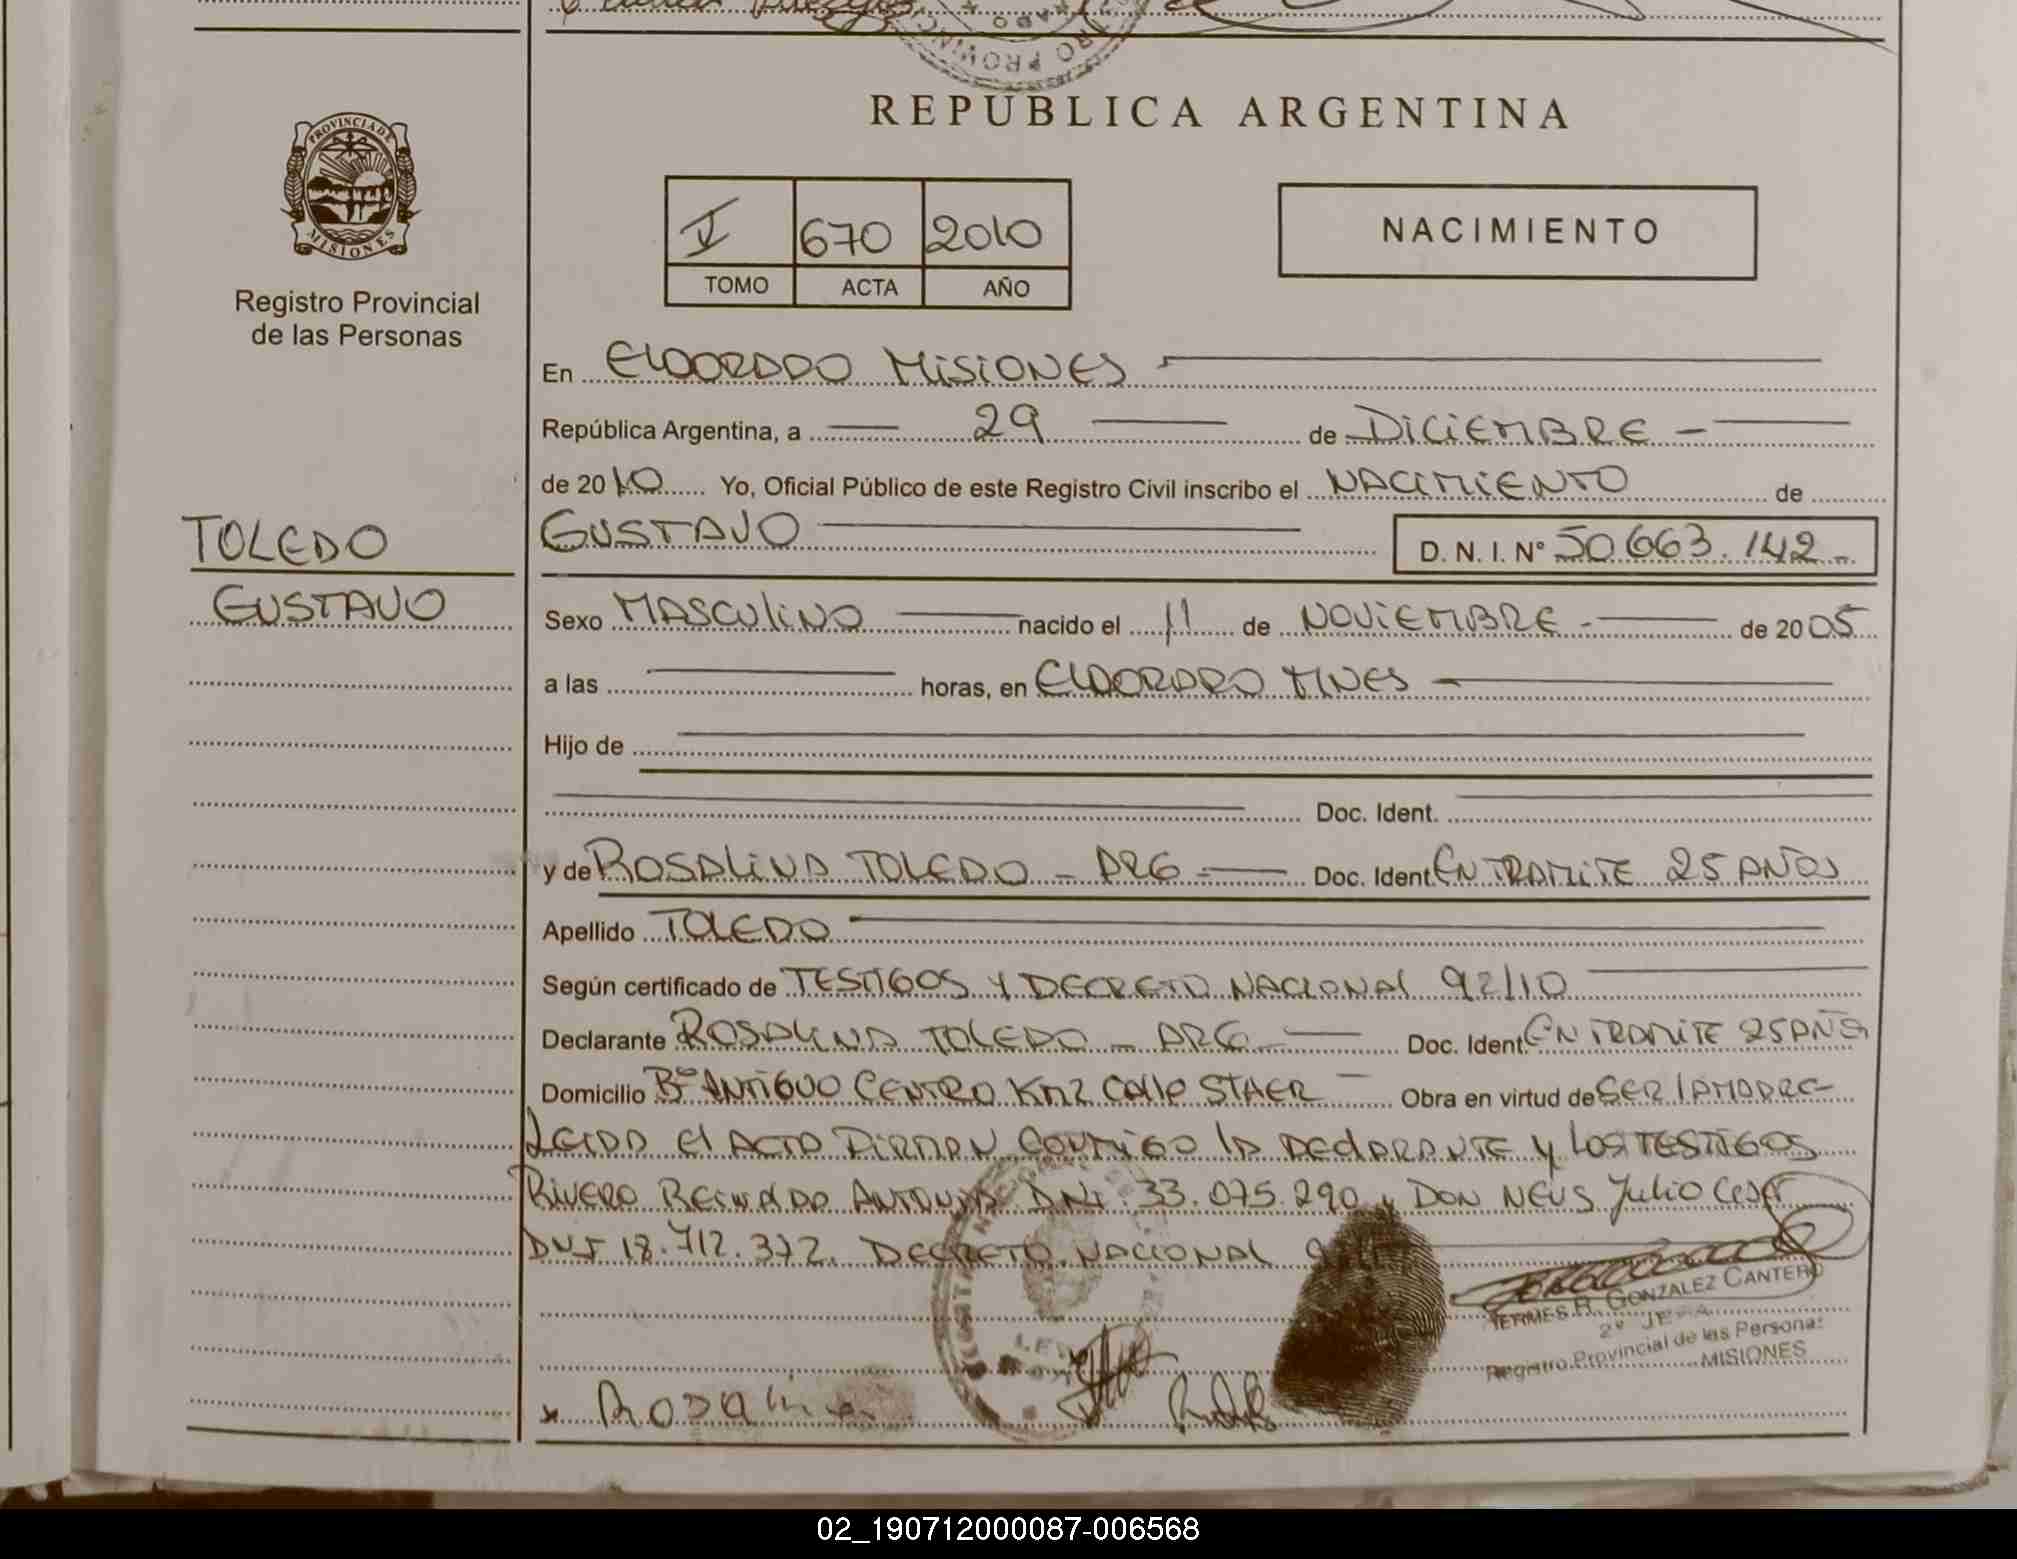 REPUBLICA ARGENTINA
PROVINCIA DE
MISIONES
Registro Provincial
de las Personas
V 670 2010
TOMO ACTA AÑO
NACIMIENTO
En ELDORADO MISIONES
República Argentina, a 29 de DICIEMBRE
de 2010 Yo, Oficial Público de este Registro Civil inscribo el NACIMIENTO de
TOLEDO
GUSTAVO
GUSTAVO D. N. I. Nº 50.663.142
Sexo MASCULINO nacido el 11 de NOVIEMBRE de 2005
a las horas, en ELDORADO MNES
Hijo de
Doc. Ident.
y de ROSALINA TOLEDO - ARG - Doc. Ident. EN TRAMITE 25 AÑOS
Apellido TOLEDO
Según certificado de TESTIGOS Y DECRETO NACIONAL 92/10
Declarante ROSALINA TOLEDO - ARG - Doc. Ident. EN TRAMITE 25 AÑOS
Domicilio Bº ANTIGUO CENTRO KM2 Calle STAER Obra en virtud de SER LA MADRE
LEIDA El ACTA FIRMAN CONMIGO LA DECLARANTE Y LOS TESTIGOS
RIVERO REINALDO ANTONIO DNI. 33.075.290 y DON NEUS Julio Cesar
DNI 18.712.372. DECRETO NACIONAL
HERMES R. GONZALEZ CANTERO
2º JEFA
Registro Provincial de las Personas
MISIONES
x Rosalina
02_190712000087-006568